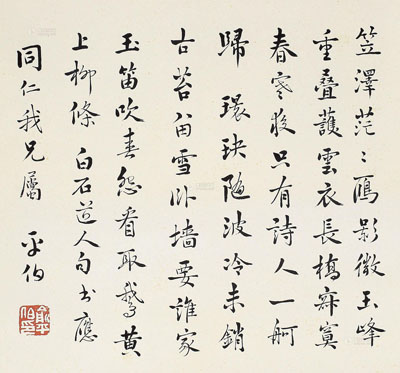 笠澤茫〻鴈影微玉峰
重叠護雲衣長橋寂寞
春寒夜只有詩人一舸
歸 環玦隨波冷未銷
古苔留雪卧墙要誰家
玉笛吹春怨看取鵞黄
上柳條 白石道人句书應
同仁我兄屬 平伯
俞平伯印